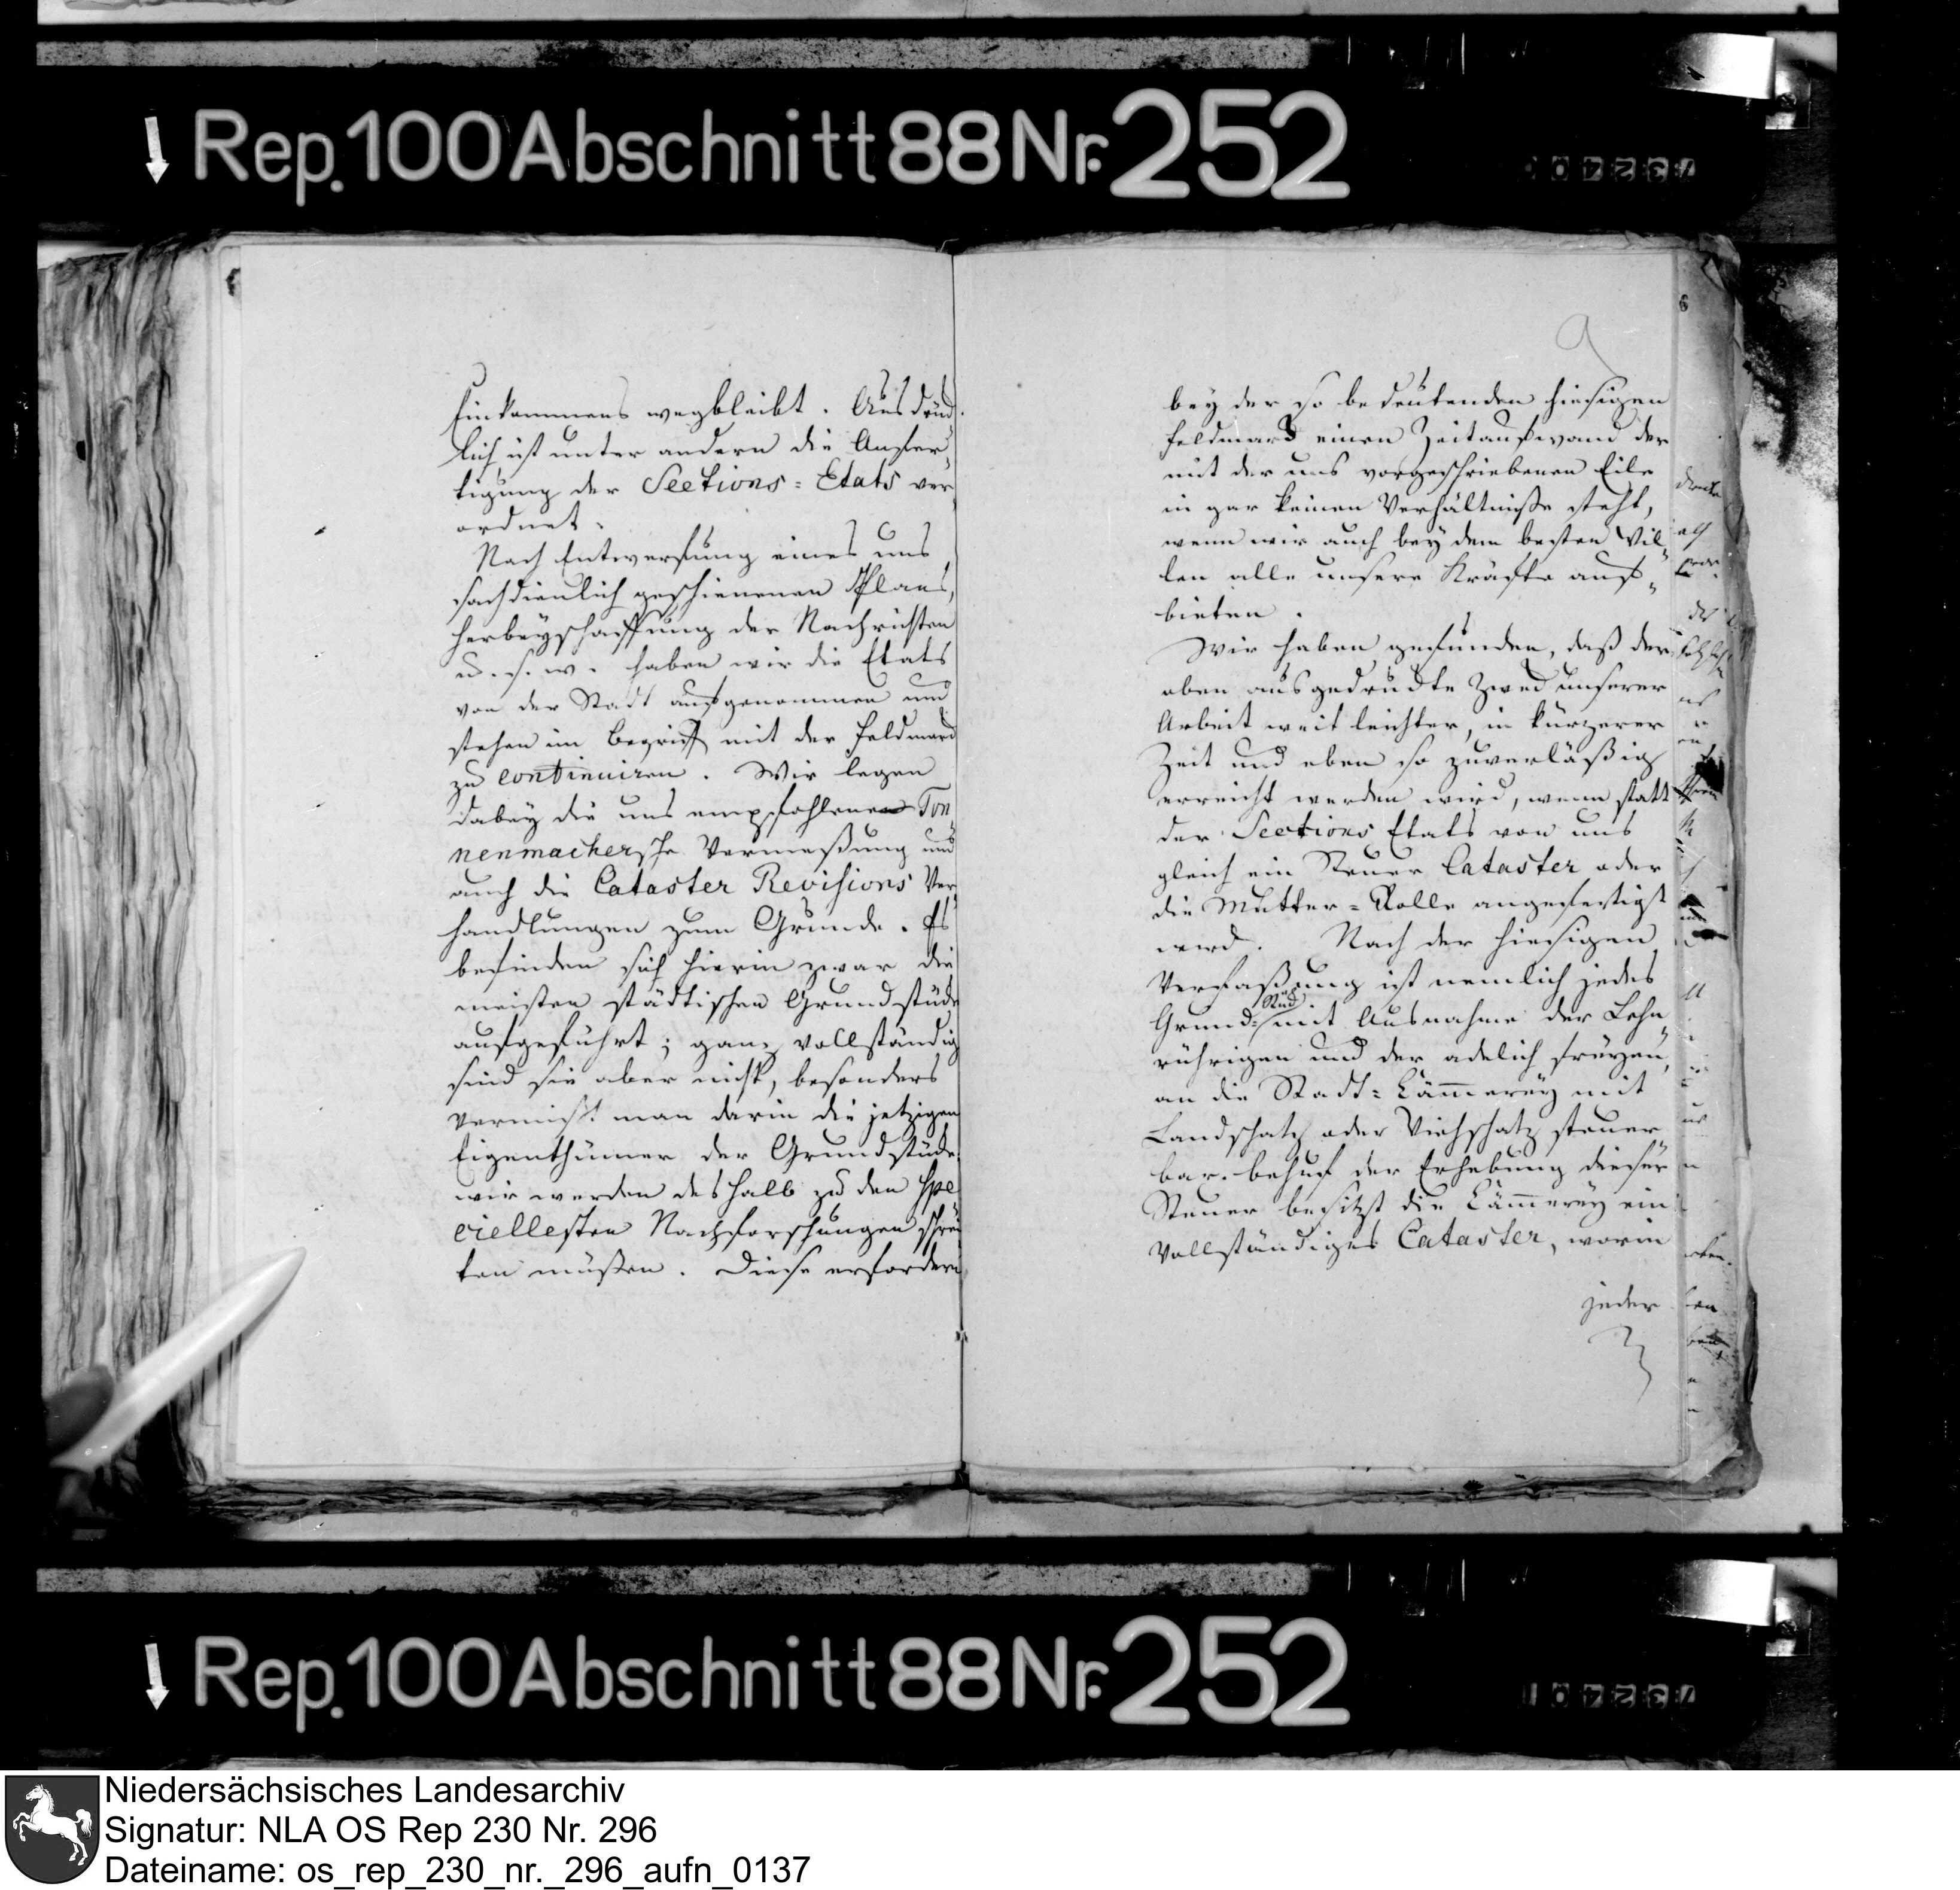 Rep.100 Abschnitt 88 Nr. 252
Einkommens wegbleibt. Ausdrück
lich ist unter andern die Anfer„
tigung der Sections = Etats ver„
ordnet.
Nach Entwerfung eines uns
sachdienlich geschienenen Plans,
herbeyschaffung der Nachrichten
u. s. w. haben wir die Etats
von der Stadt aufgenommen und
stehen im Begriff mit der Feldmark
zu continuiren. Wir legen
dabey die uns empfohlene Ton
nenmachersche Vermeßung und
auch die Cataster Revisions Ver„
handlungen zum Grunde. Es
befinden sich hierin zwar die
meisten städtischen Grundstücke
aufgeführt; ganz vollständig
sind sie aber nicht, besonders
vermißt man darin die jetzigen
Eigenthümer der Grundstücke,
wir werden deshalb zu den spe
ciellesten Nachforschungen schrei
ten müßen. Diese erfordern
9
bey der so bedeutenden hiesigen
Feldmark einen Zeitaufwand der
mit der uns vorgeschriebenen Eile
in gar keinen Verhältniße steht,
wenn wir auch bey dem besten Wil„
len alle unsere Kräfte auf„
bieten.
Wir haben gefunden, daß der
oben ausgedruckte Zweck unserer
Arbeit weit leichter, in kürzerer
Zeit und eben so zuverläßig
erreicht werden wird, wenn statt
der Sections Etats von uns
gleich ein Steuer Cataster oder
die Mutter = Rolle angefertigt
wird. Nach der hiesigen
Verfaßung ist nemlich jedes
Grund= Stück mit Ausnahme der Lehn„
rührigen und der adelich freyen,
an die Stadt = Cämmerey mit
Landschatz oder Viehschatz steuer
bar. behuf der Erhebung dieser
Steuer besitzt die Cämmerey ein
vollständiges Cataster, worin
jeder
Rep.100 Abschnitt 88 Nr. 252
Niedersächsisches Landesarchiv
Signatur: NLA OS Rep 230 Nr. 296
Dateiname: os_rep_230_nr._296_aufn_0137